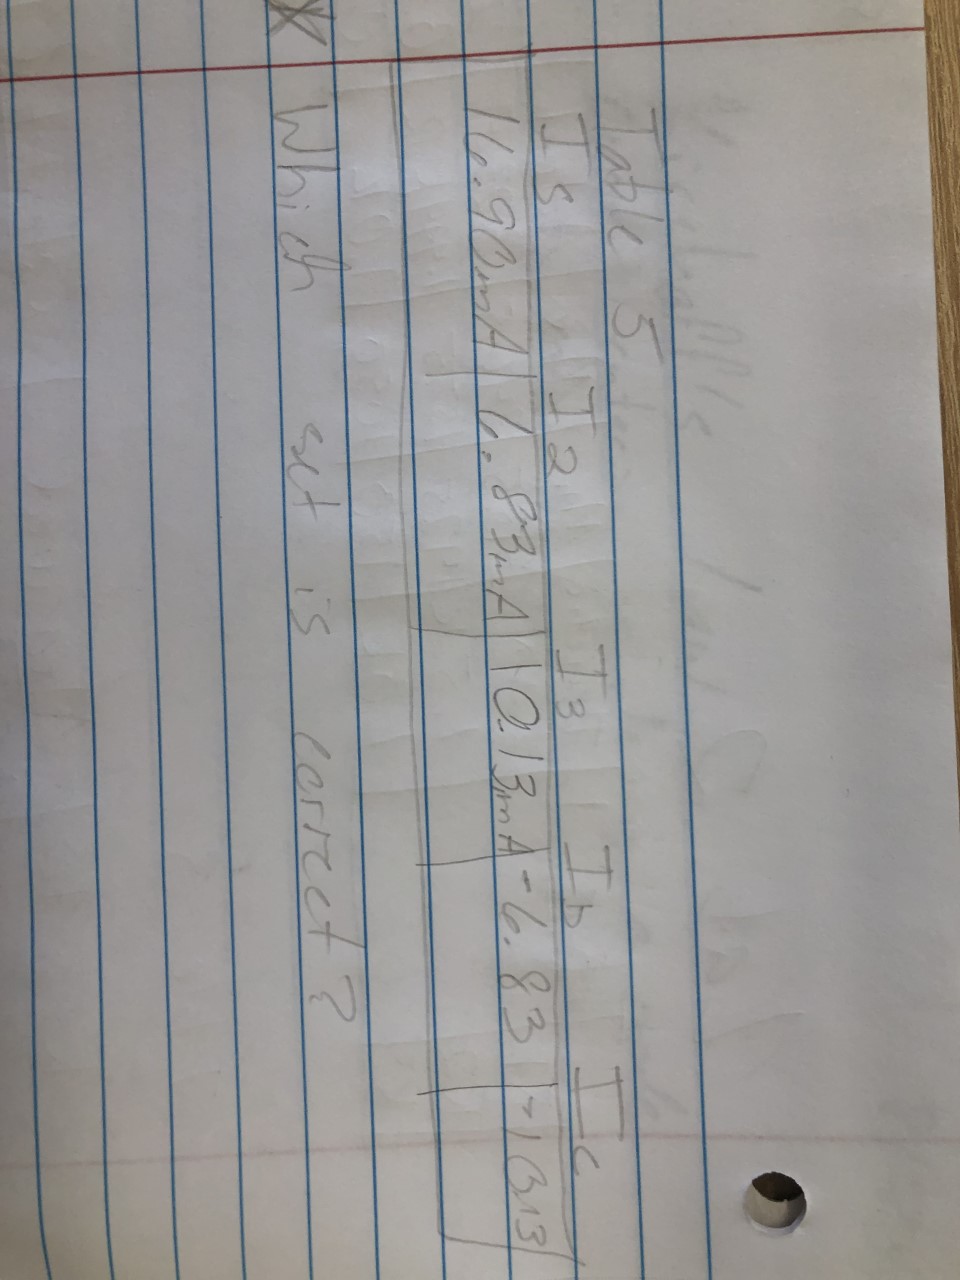 Table 5
I5 I2 I3 Ib Ic
16.90mA 6.83mA 10.13mA -6.83 -10.13
* Which set is correct?